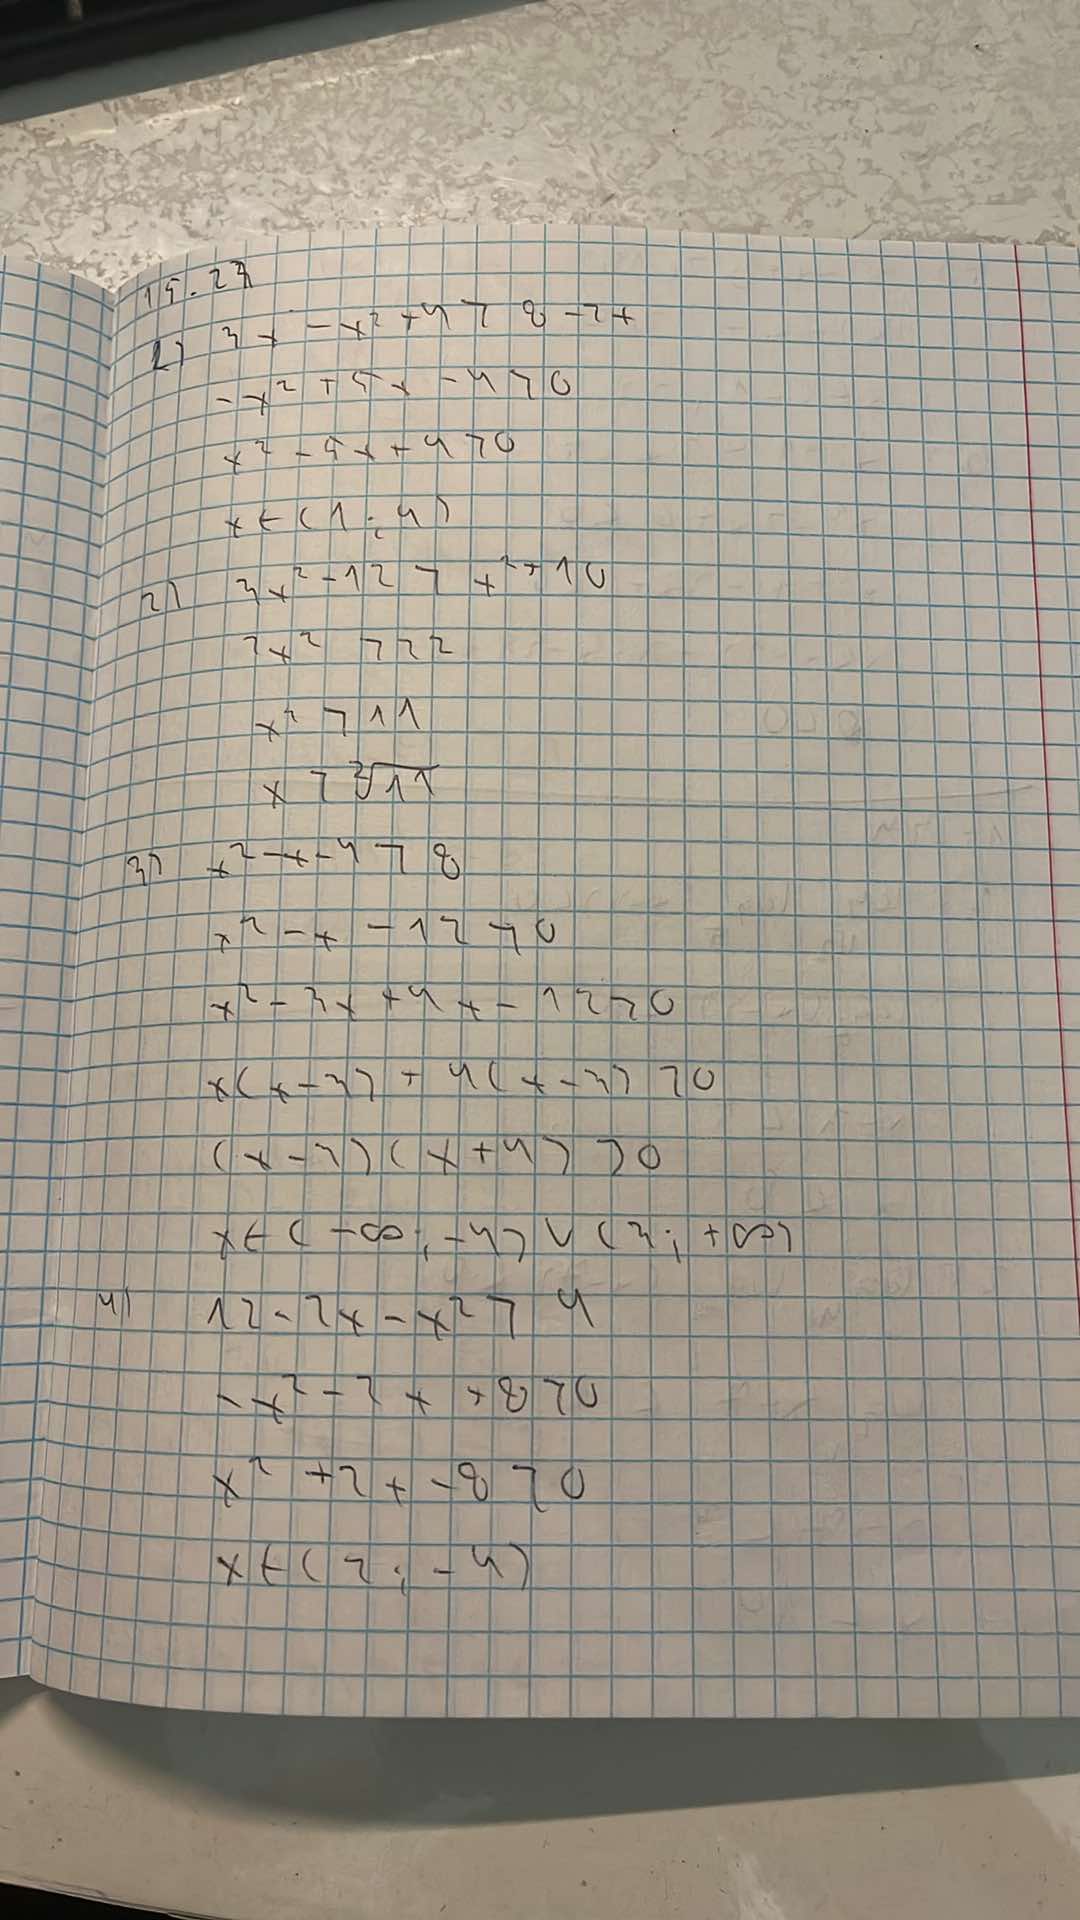 15.23
1) 3x - x² + 4 > 8 - 2x
-x² + 5x - 4 > 0
x² - 5x + 4 > 0
x ∈ (1; 4)
2) 3x² - 12 > x² + 10
2x² > 22
x² > 11
x > ²√11
3) x² - x - 4 > 8
x² - x - 12 > 0
x² - 3x + 4x - 12 > 0
x(x - 3) + 4(x - 3) > 0
(x - 3)(x + 4) > 0
x ∈ (-∞; -4) ∪ (3; +∞)
4) 12 - 2x - x² > 4
-x² - 2x + 8 > 0
x² + 2x - 8 > 0
x ∈ (2; -4)